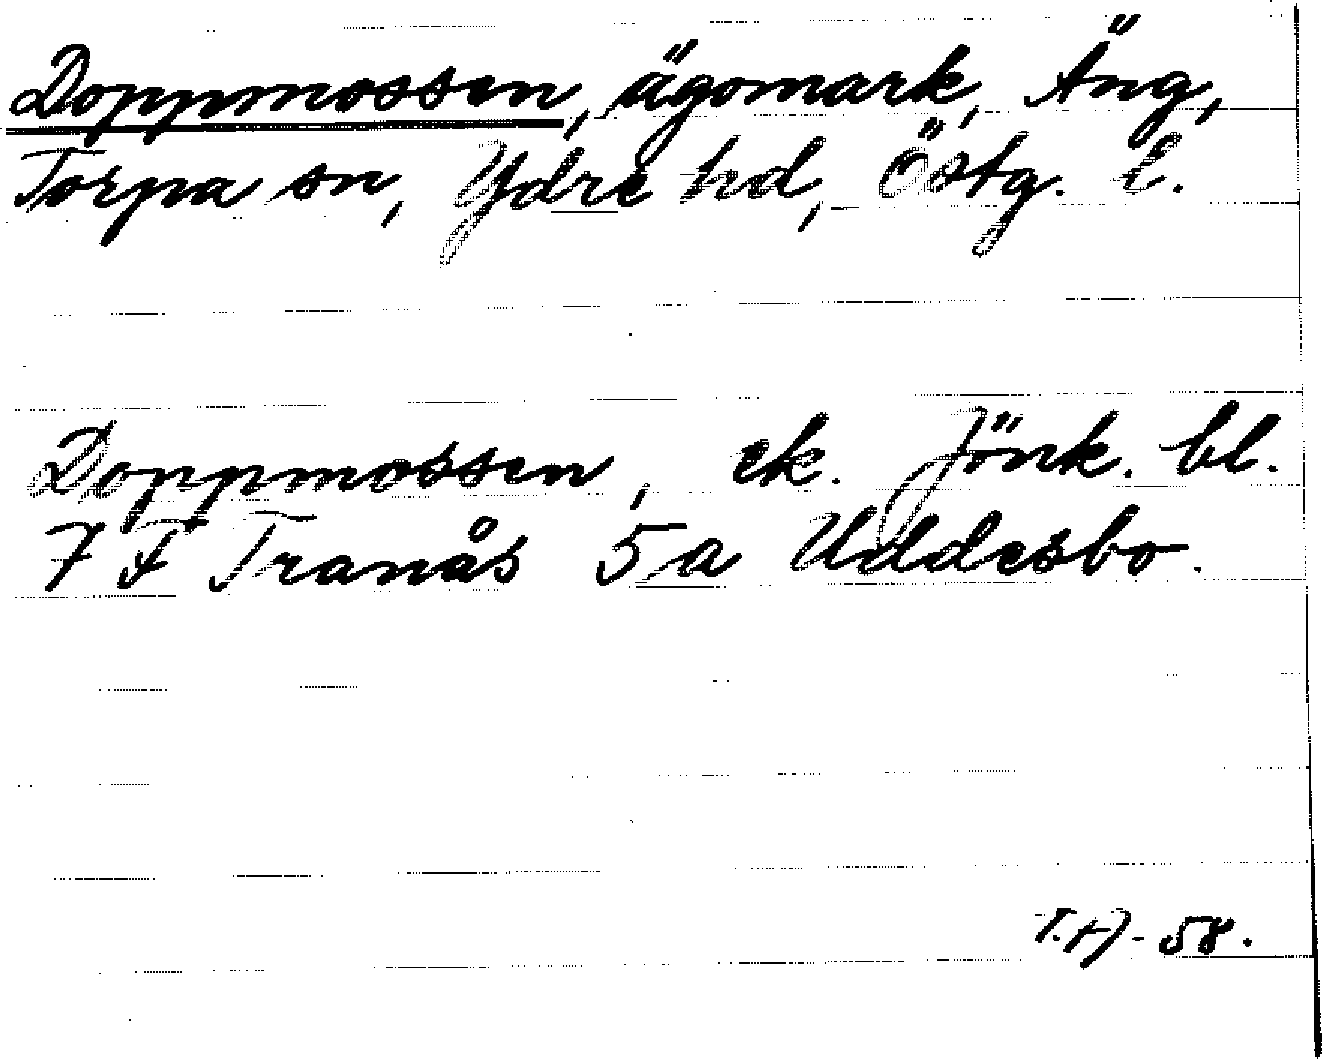 Doppmossen, ägomark, Äng,
Torpa sn, Ydre hd, Östg. l.
Doppmossen, ek. Jönk. bl.
7 F Tranås 5a Uddesbo.
T.H. 58.